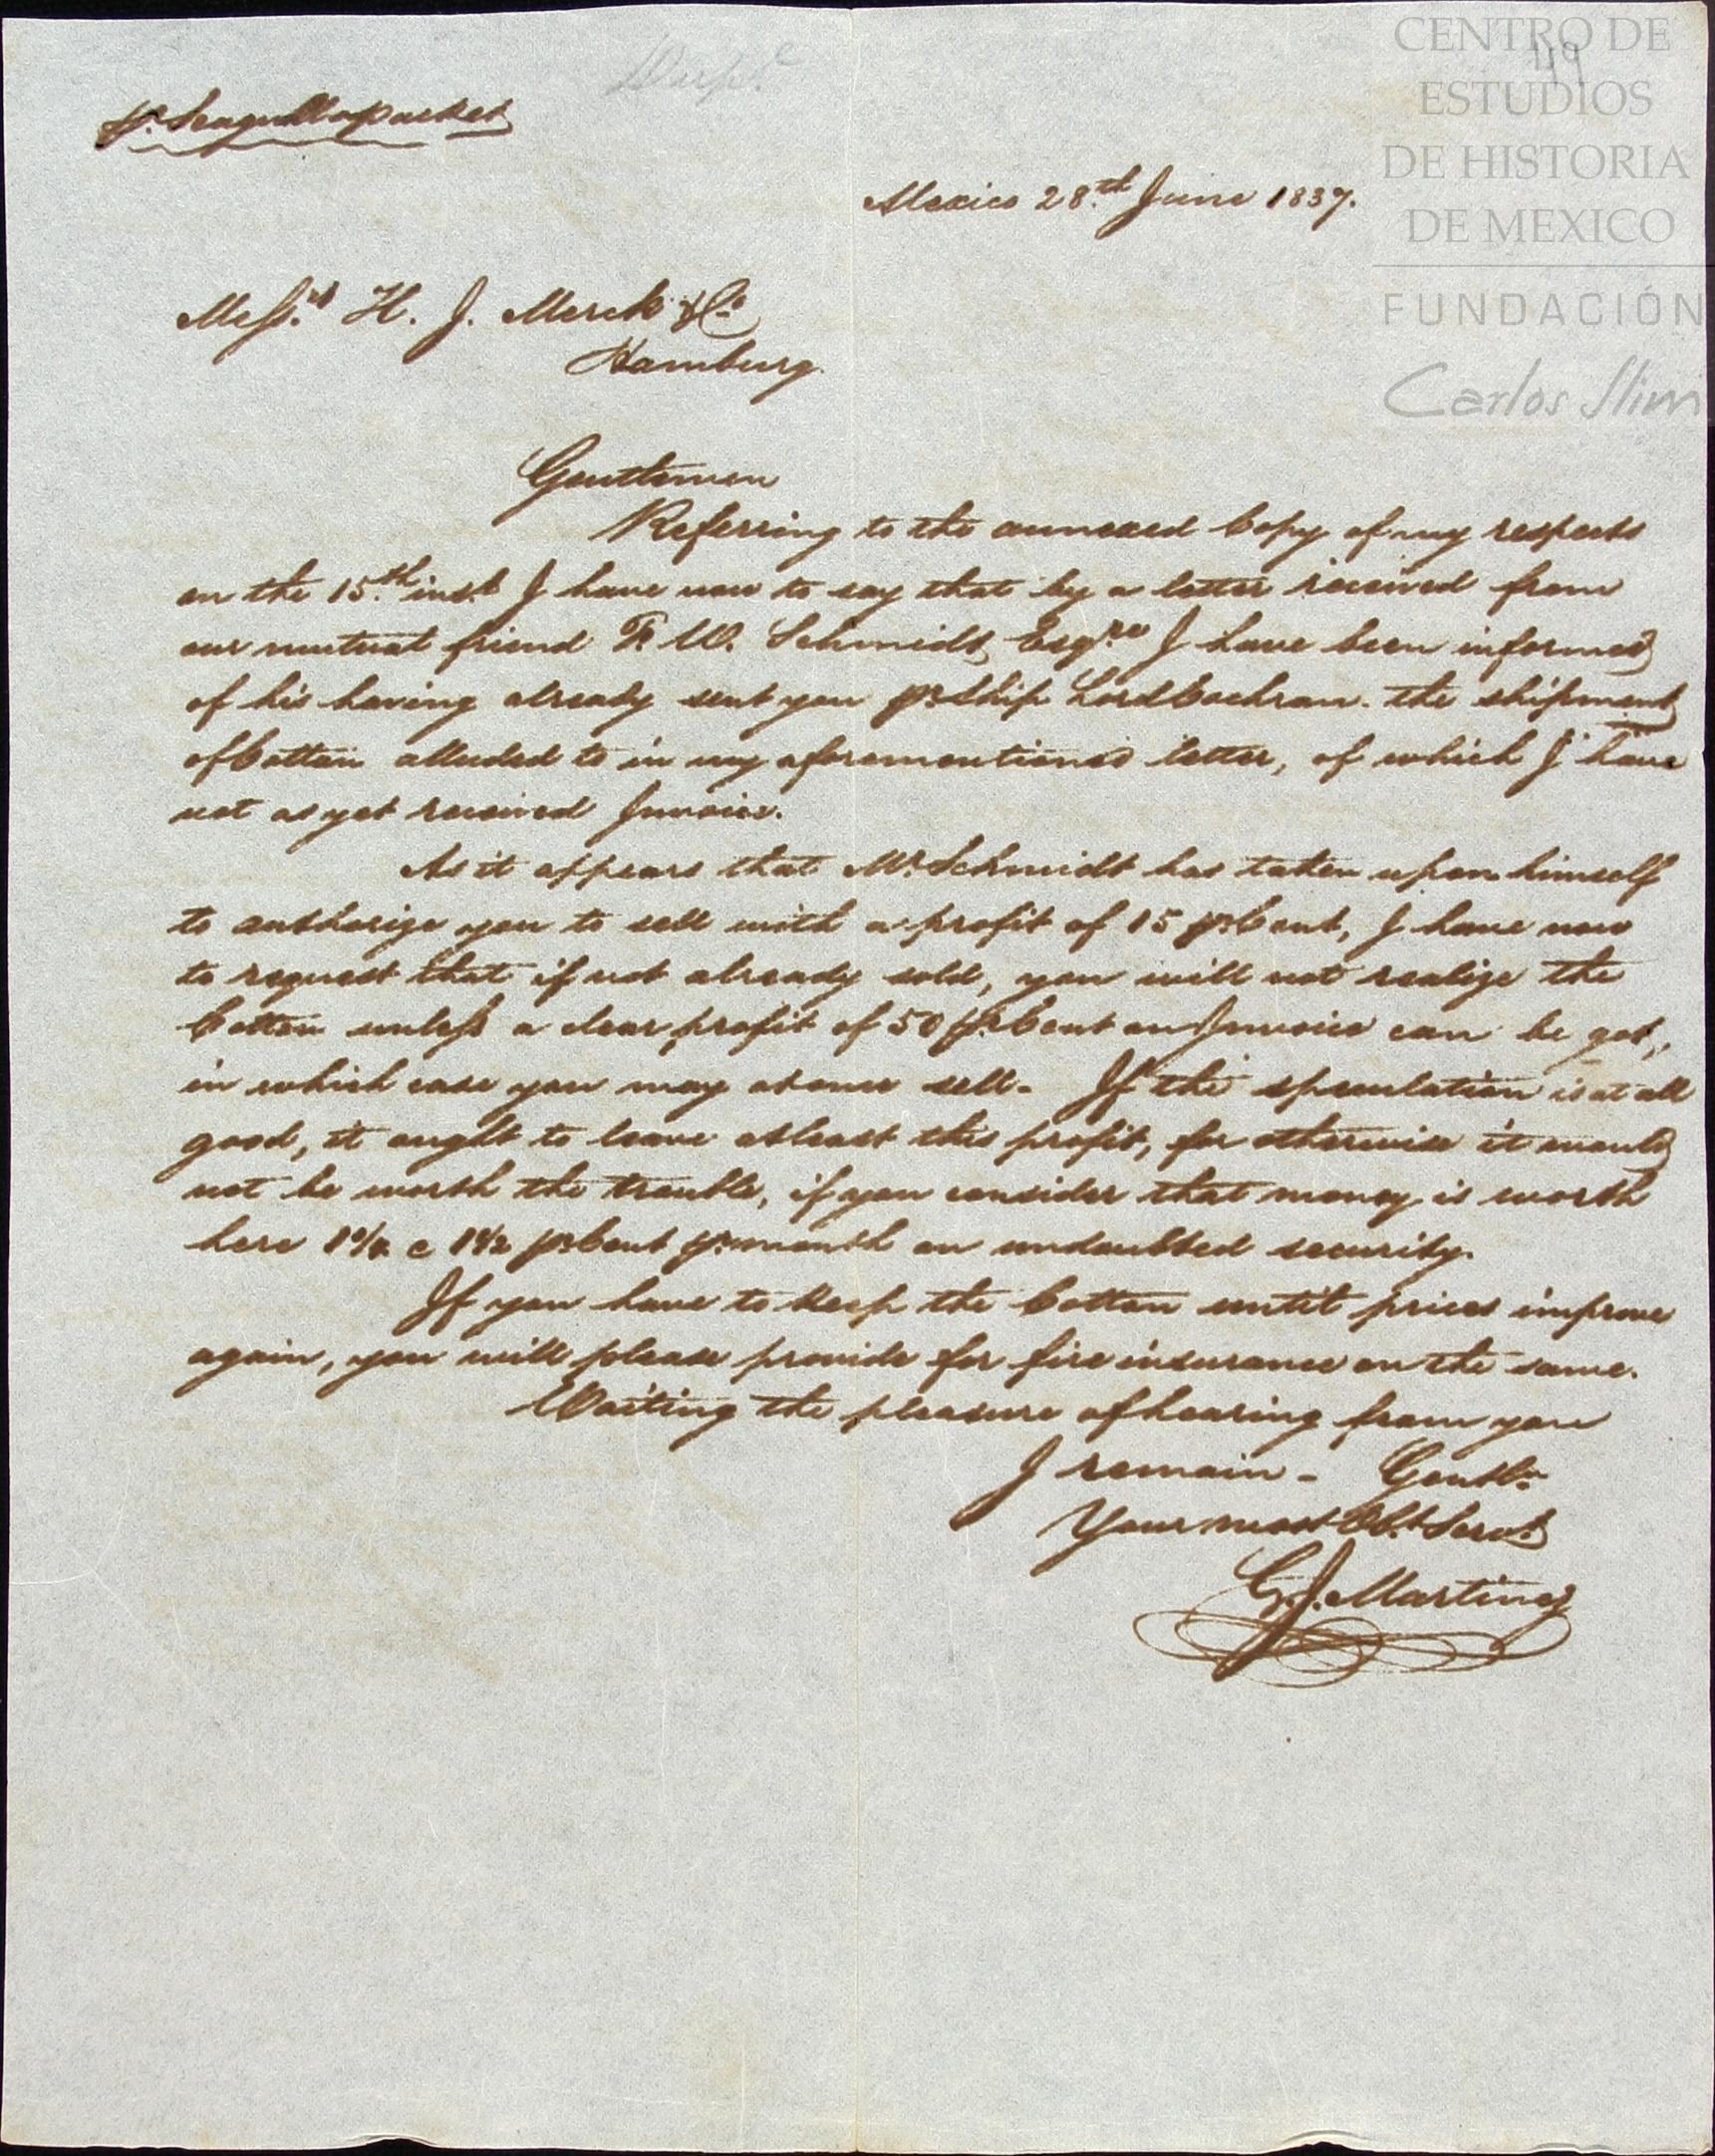 CENTRO DE
ESTUDIOS
DE HISTORIA
DE MEXICO
FUNDACIÓN
Carlos Slim
49
pr. Seagull packet
Mexico 28th June 1837.
Messrs H. J. Merck & Co
Hamburg.
Gentlemen
Referring to the annexed Copy of my respects
on the 15th inst I have now to say that by a letter received from
our mutual friend F. W. Schmidt, Esqre I have been informed
of his having already sent you pr Ship Lord Cochran. the shipment
of Cotton alluded to in my aforementioned letter, of which I have
not as yet received Invoice.
As it appears that Mr Schmidt has taken upon himself
to authorize you to sell with a profit of 15 pr Cent, I have now
to request that if not already sold, you will not realize the
Cotton unless a clear profit of 50 pr Cent on Invoice can be got,
in which case you may at once sell. If the speculation is at all
good, it ought to leave at least this profit, for otherwise it would
not be worth the trouble, if you consider that money is worth
here 1 1/2 pr Cent pr month on undoubted security.
If you have to keep the Cotton until prices improve
again, you will please provide for fire insurance on the same.
Waiting the pleasure of hearing from you
I remain - Gentln
Your most Obt Servt
G. J. Martinez